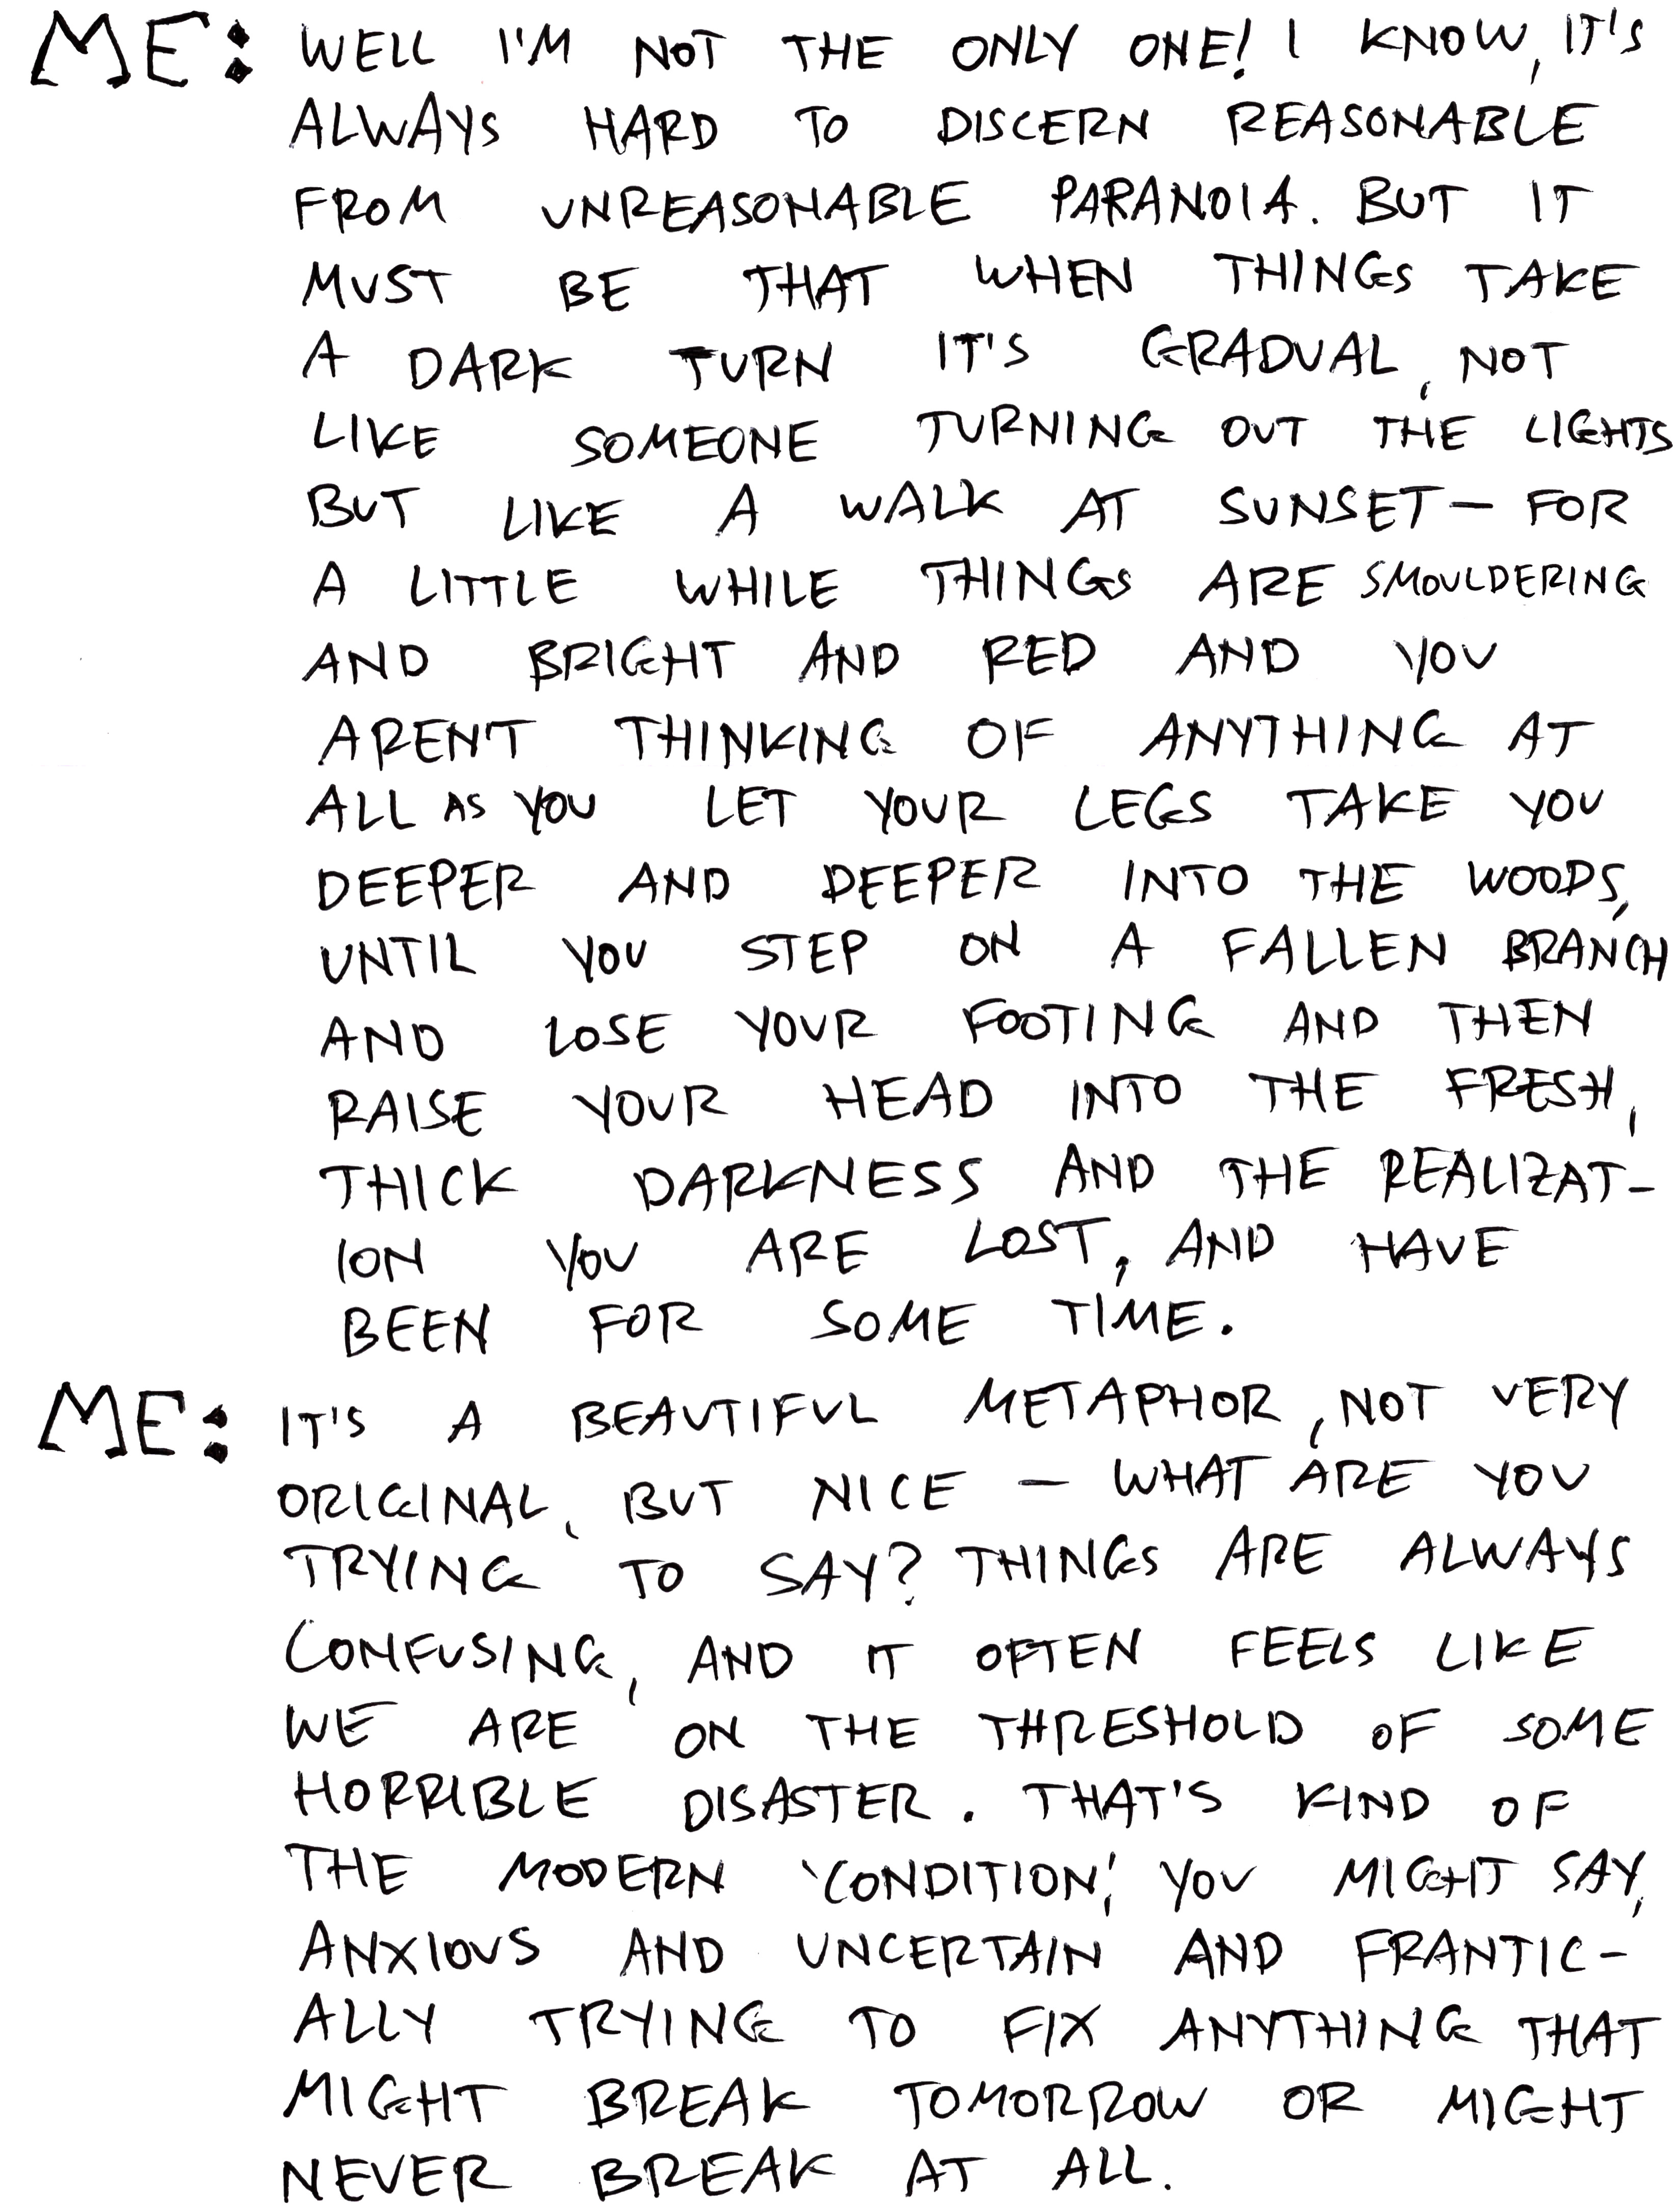 ME: WELL I'M NOT THE ONLY ONE! I KNOW, IT'S
ALWAYS HARD TO DISCERN REASONABLE
FROM UNREASONABLE PARANOIA. BUT IT
MUST BE THAT WHEN THINGS TAKE
A DARK TURN IT'S GRADUAL, NOT
LIKE SOMEONE TURNING OUT THE LIGHTS
BUT LIKE A WALK AT SUNSET — FOR
A LITTLE WHILE THINGS ARE SMOULDERING
AND BRIGHT AND RED AND YOU
AREN'T THINKING OF ANYTHING AT
ALL AS YOU LET YOUR LEGS TAKE YOU
DEEPER AND DEEPER INTO THE WOODS,
UNTIL YOU STEP ON A FALLEN BRANCH
AND LOSE YOUR FOOTING AND THEN
RAISE YOUR HEAD INTO THE FRESH,
THICK DARKNESS AND THE REALIZAT-
ION YOU ARE LOST, AND HAVE
BEEN FOR SOME TIME.
ME: IT'S A BEAUTIFUL METAPHOR, NOT VERY
ORIGINAL, BUT NICE — WHAT ARE YOU
TRYING TO SAY? THINGS ARE ALWAYS
CONFUSING, AND IT OFTEN FEELS LIKE
WE ARE ON THE THRESHOLD OF SOME
HORRIBLE DISASTER. THAT'S KIND OF
THE MODERN 'CONDITION', YOU MIGHT SAY,
ANXIOUS AND UNCERTAIN AND FRANTIC-
ALLY TRYING TO FIX ANYTHING THAT
MIGHT BREAK TOMORROW OR MIGHT
NEVER BREAK AT ALL.